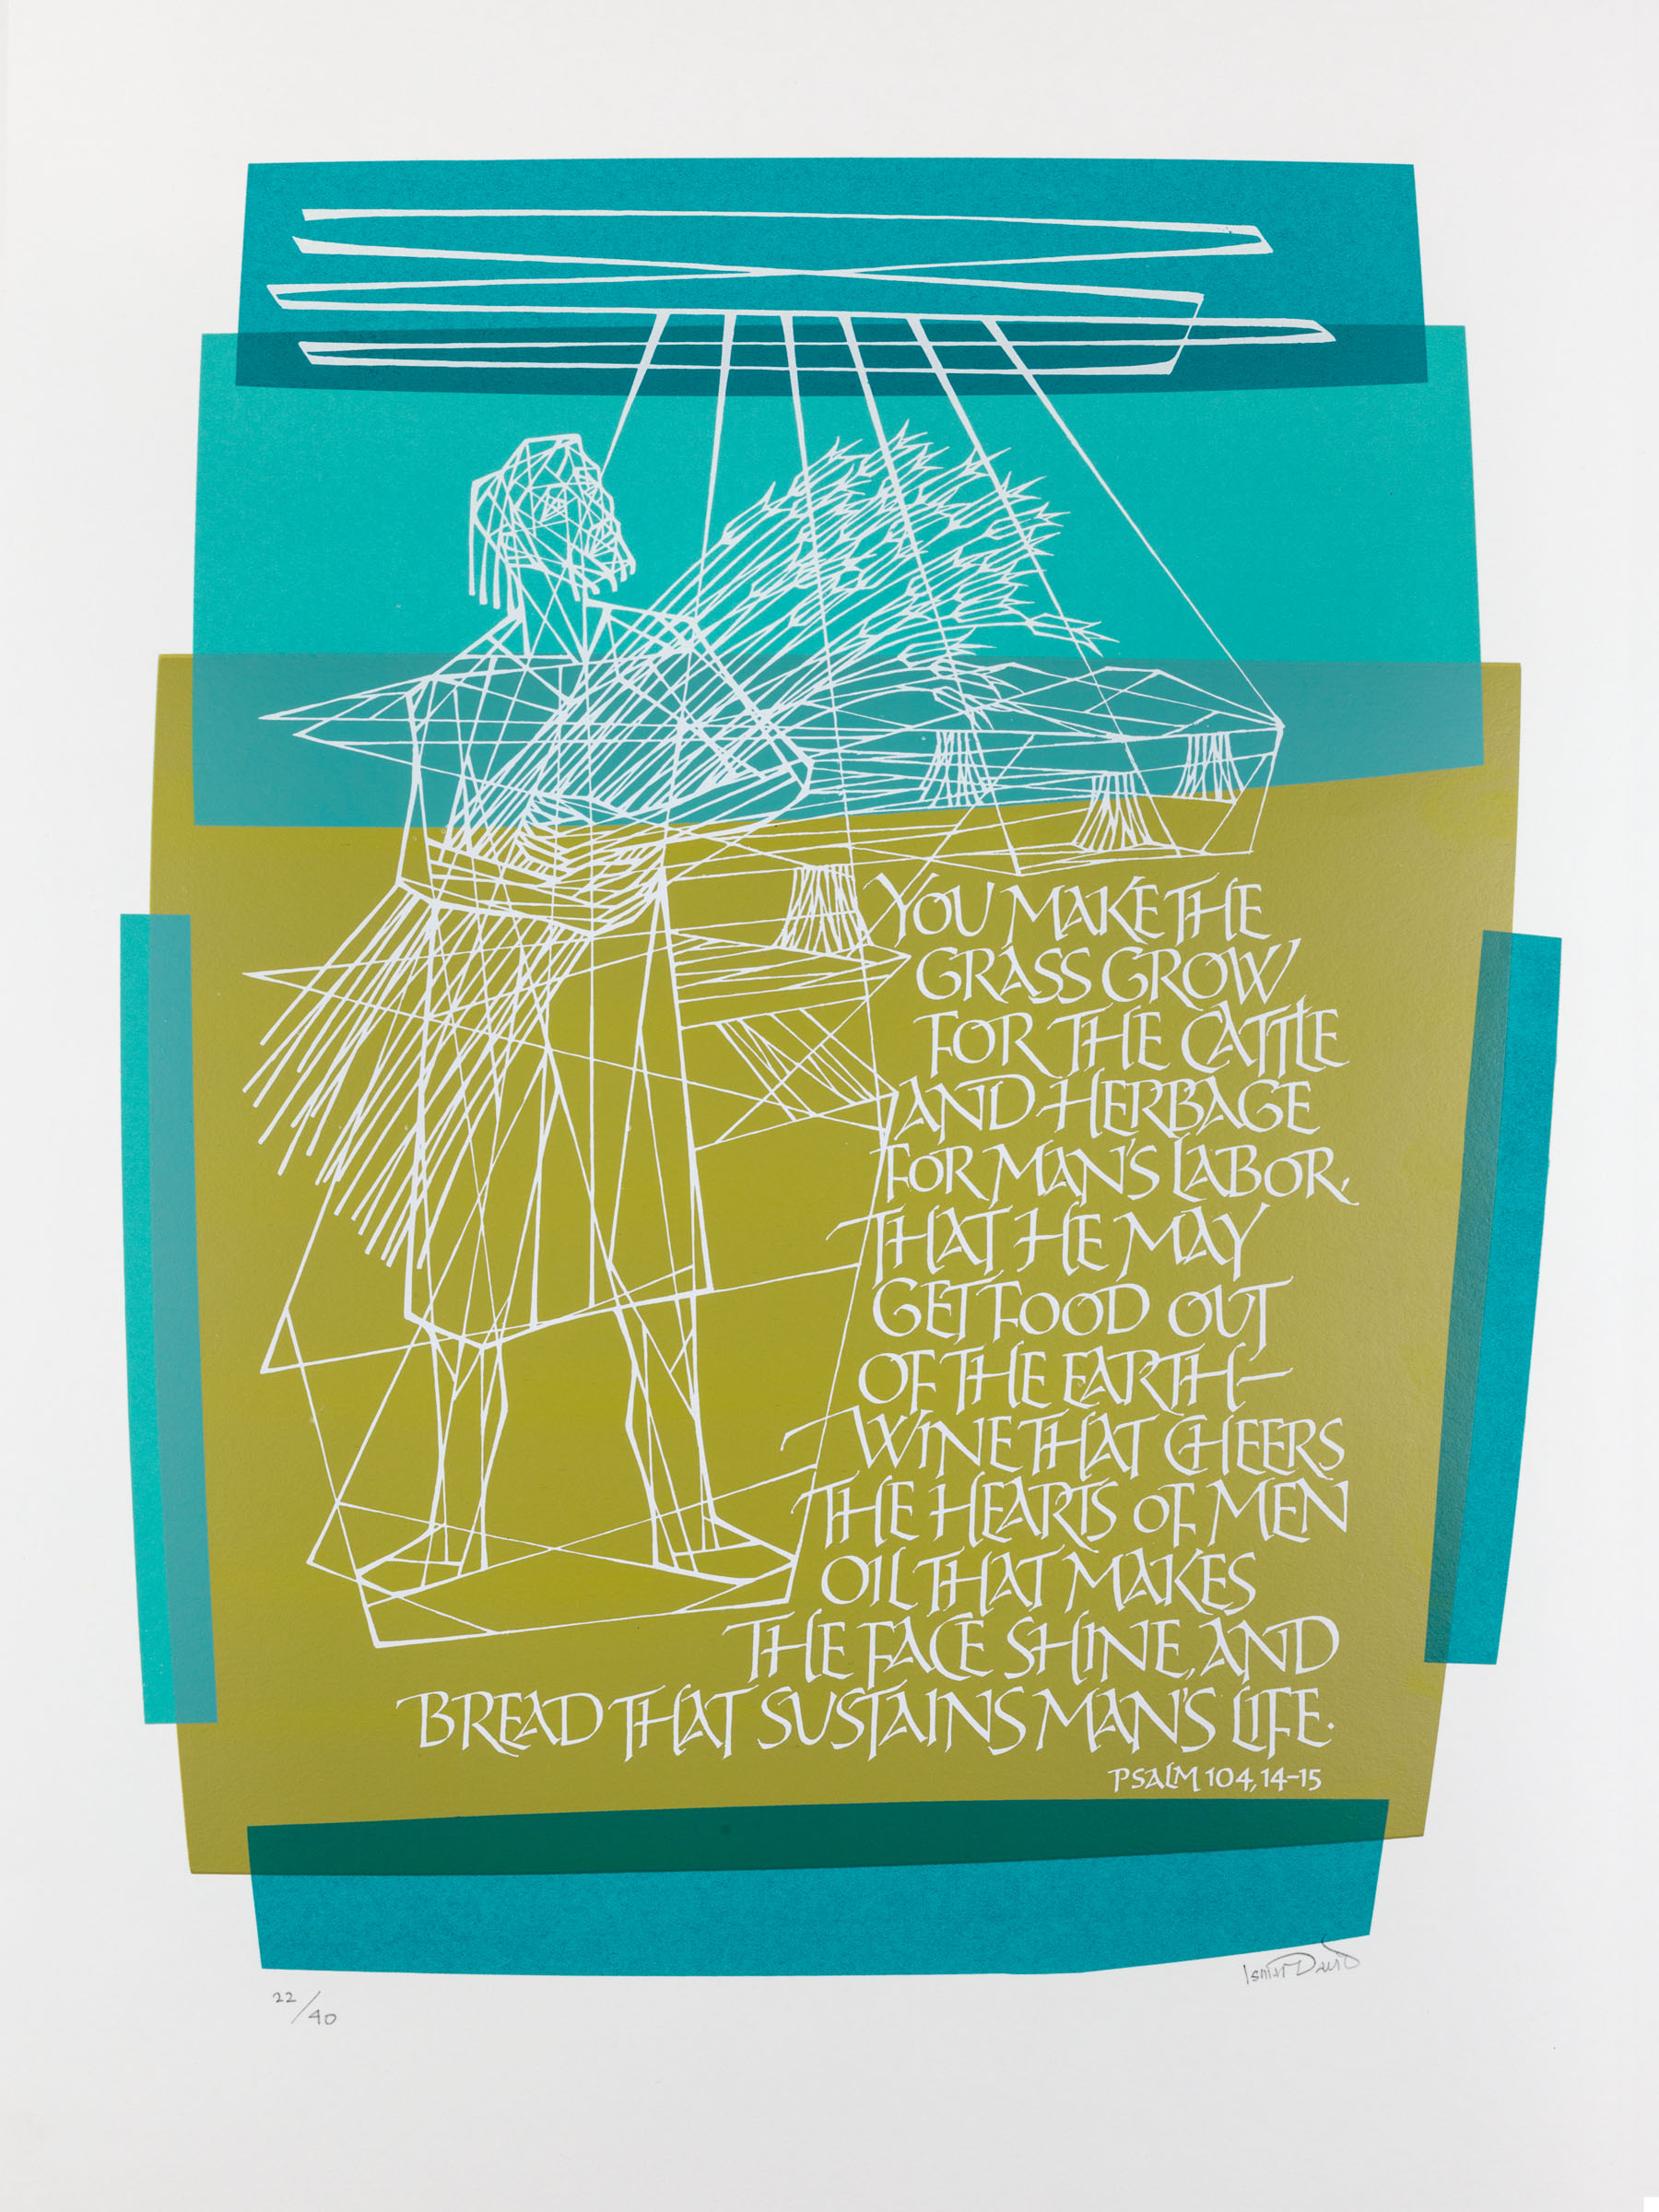 YOU MAKE THE
GRASS GROW
FOR THE CATTLE
AND HERBAGE
FOR MAN'S LABOR,
THAT HE MAY
GET FOOD OUT
OF THE EARTH—
WINE THAT CHEERS
THE HEARTS OF MEN
OIL THAT MAKES
THE FACE SHINE, AND
BREAD THAT SUSTAINS MAN'S LIFE.
PSALM 104, 14-15
Ismar David
22/40